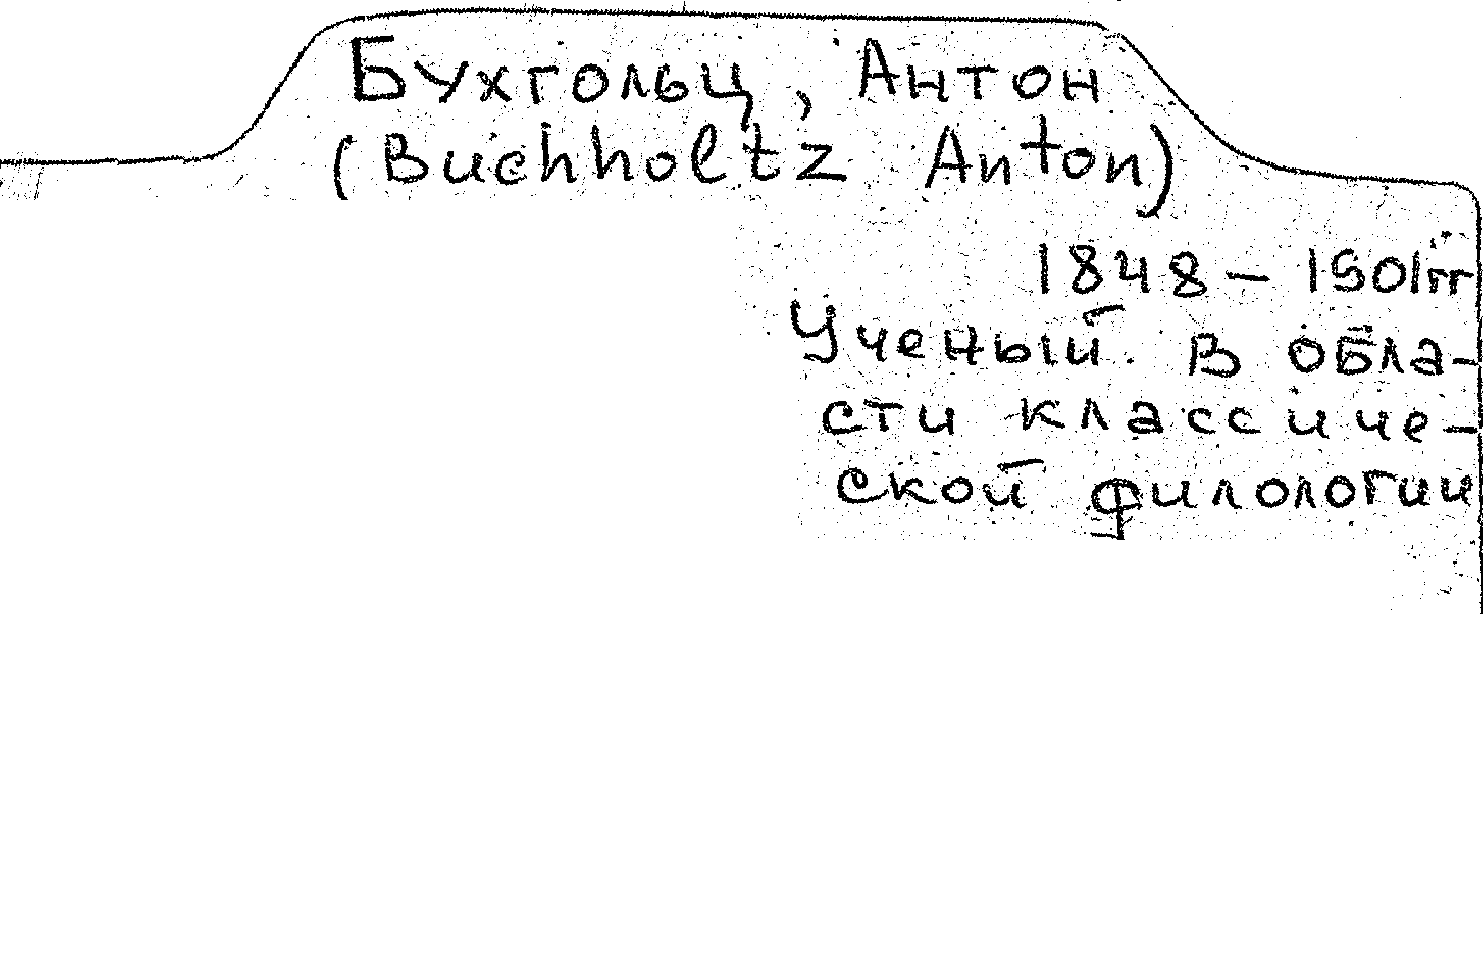 Бухгольц, Антон
(Buchholtz Anton)
1848 - 1901гг
Ученый в обла-
сти классиче-
ской филологии